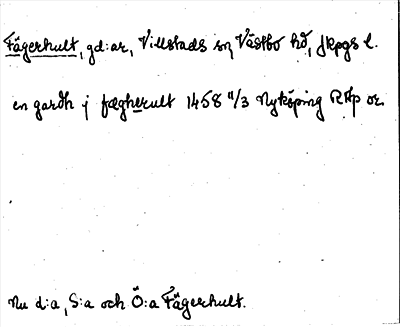 Fägerhult, gd:ar, Villstads sn, Västbo hd, Jkpgs l.
en gardh j fægherult 1458 11/3 Nyköping RAp or.
Nu d:a, S:a och Ö:a Fägerhult.